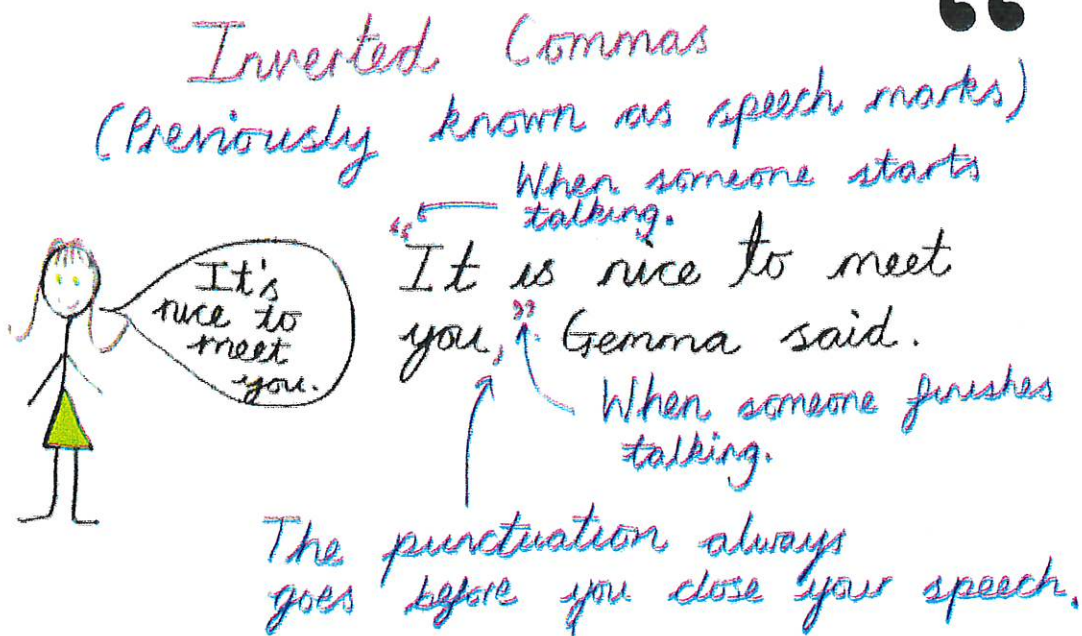 “
Inverted Commas
(Previously known as speech marks)
When someone starts
talking.
“It is nice to meet
you,” Gemma said.
It's
nice to
meet
you.
When someone finishes
talking.
The punctuation always
goes before you close your speech.